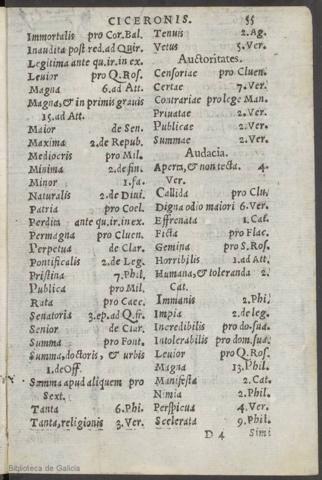 CICERONIS. 55
Immortalis pro Cor. Bal.
Inaudita post red. ad Quir.
Legitima ante qu. ir. in ex.
Leuior pro Q. Ros.
Magna 6. ad Att.
Magna, & in primis grauis
15. ad Att.
Maior de Sen.
Maxima 2. de Repub.
Mediocris pro Mil.
Minima 2. de fin.
Minor 1. fa.
Naturalis 2. de Diui.
Patria pro Coel.
Perdita ante qu. ir. in ex.
Permagna pro Cluen.
Perpetua de Clar.
Pontificalis 2. de Leg.
Pristina 7. Phil.
Publica pro Mil.
Rata pro Caec.
Senatoris 3. ep. ad Q. fr.
Senior de Clar.
Summa pro Font.
Summa, doctoris, & urbis
1. de Off.
Summa apud aliquem pro
Sext.
Tanta 6. Phi.
Tanta, religionis 3. Ver.
Tenuis 2. Ag.
Vetus 5. Ver.
Auctoritates.
Censoriae pro Cluen.
Certae 7. Ver.
Contrariae pro lege Man.
Priuatae 2. Ver.
Publicae 2. Ver.
Summae 2. Ver.
Audacia.
Aperta, & non tecta. 4.
Ver.
Callida pro Clu.
Digna odio maiori 6. Ver.
Effrenata 1. Cat.
Ficta pro Flac.
Gemina pro S. Ros.
Horribilis 1. ad Att.
Humana, & toleranda 2.
Cat.
Immanis 2. Phi.
Impia 2. de leg.
Incredibilis pro do. sua.
Intolerabilis pro dom. sua.
Leuior pro Q. Ros.
Magna 13. Phil.
Manifesta 2. Cat.
Nimia 2. Phil.
Perspicua 4. Ver.
Scelerata 9. Phil.
D 4 Simi
Biblioteca de Galicia